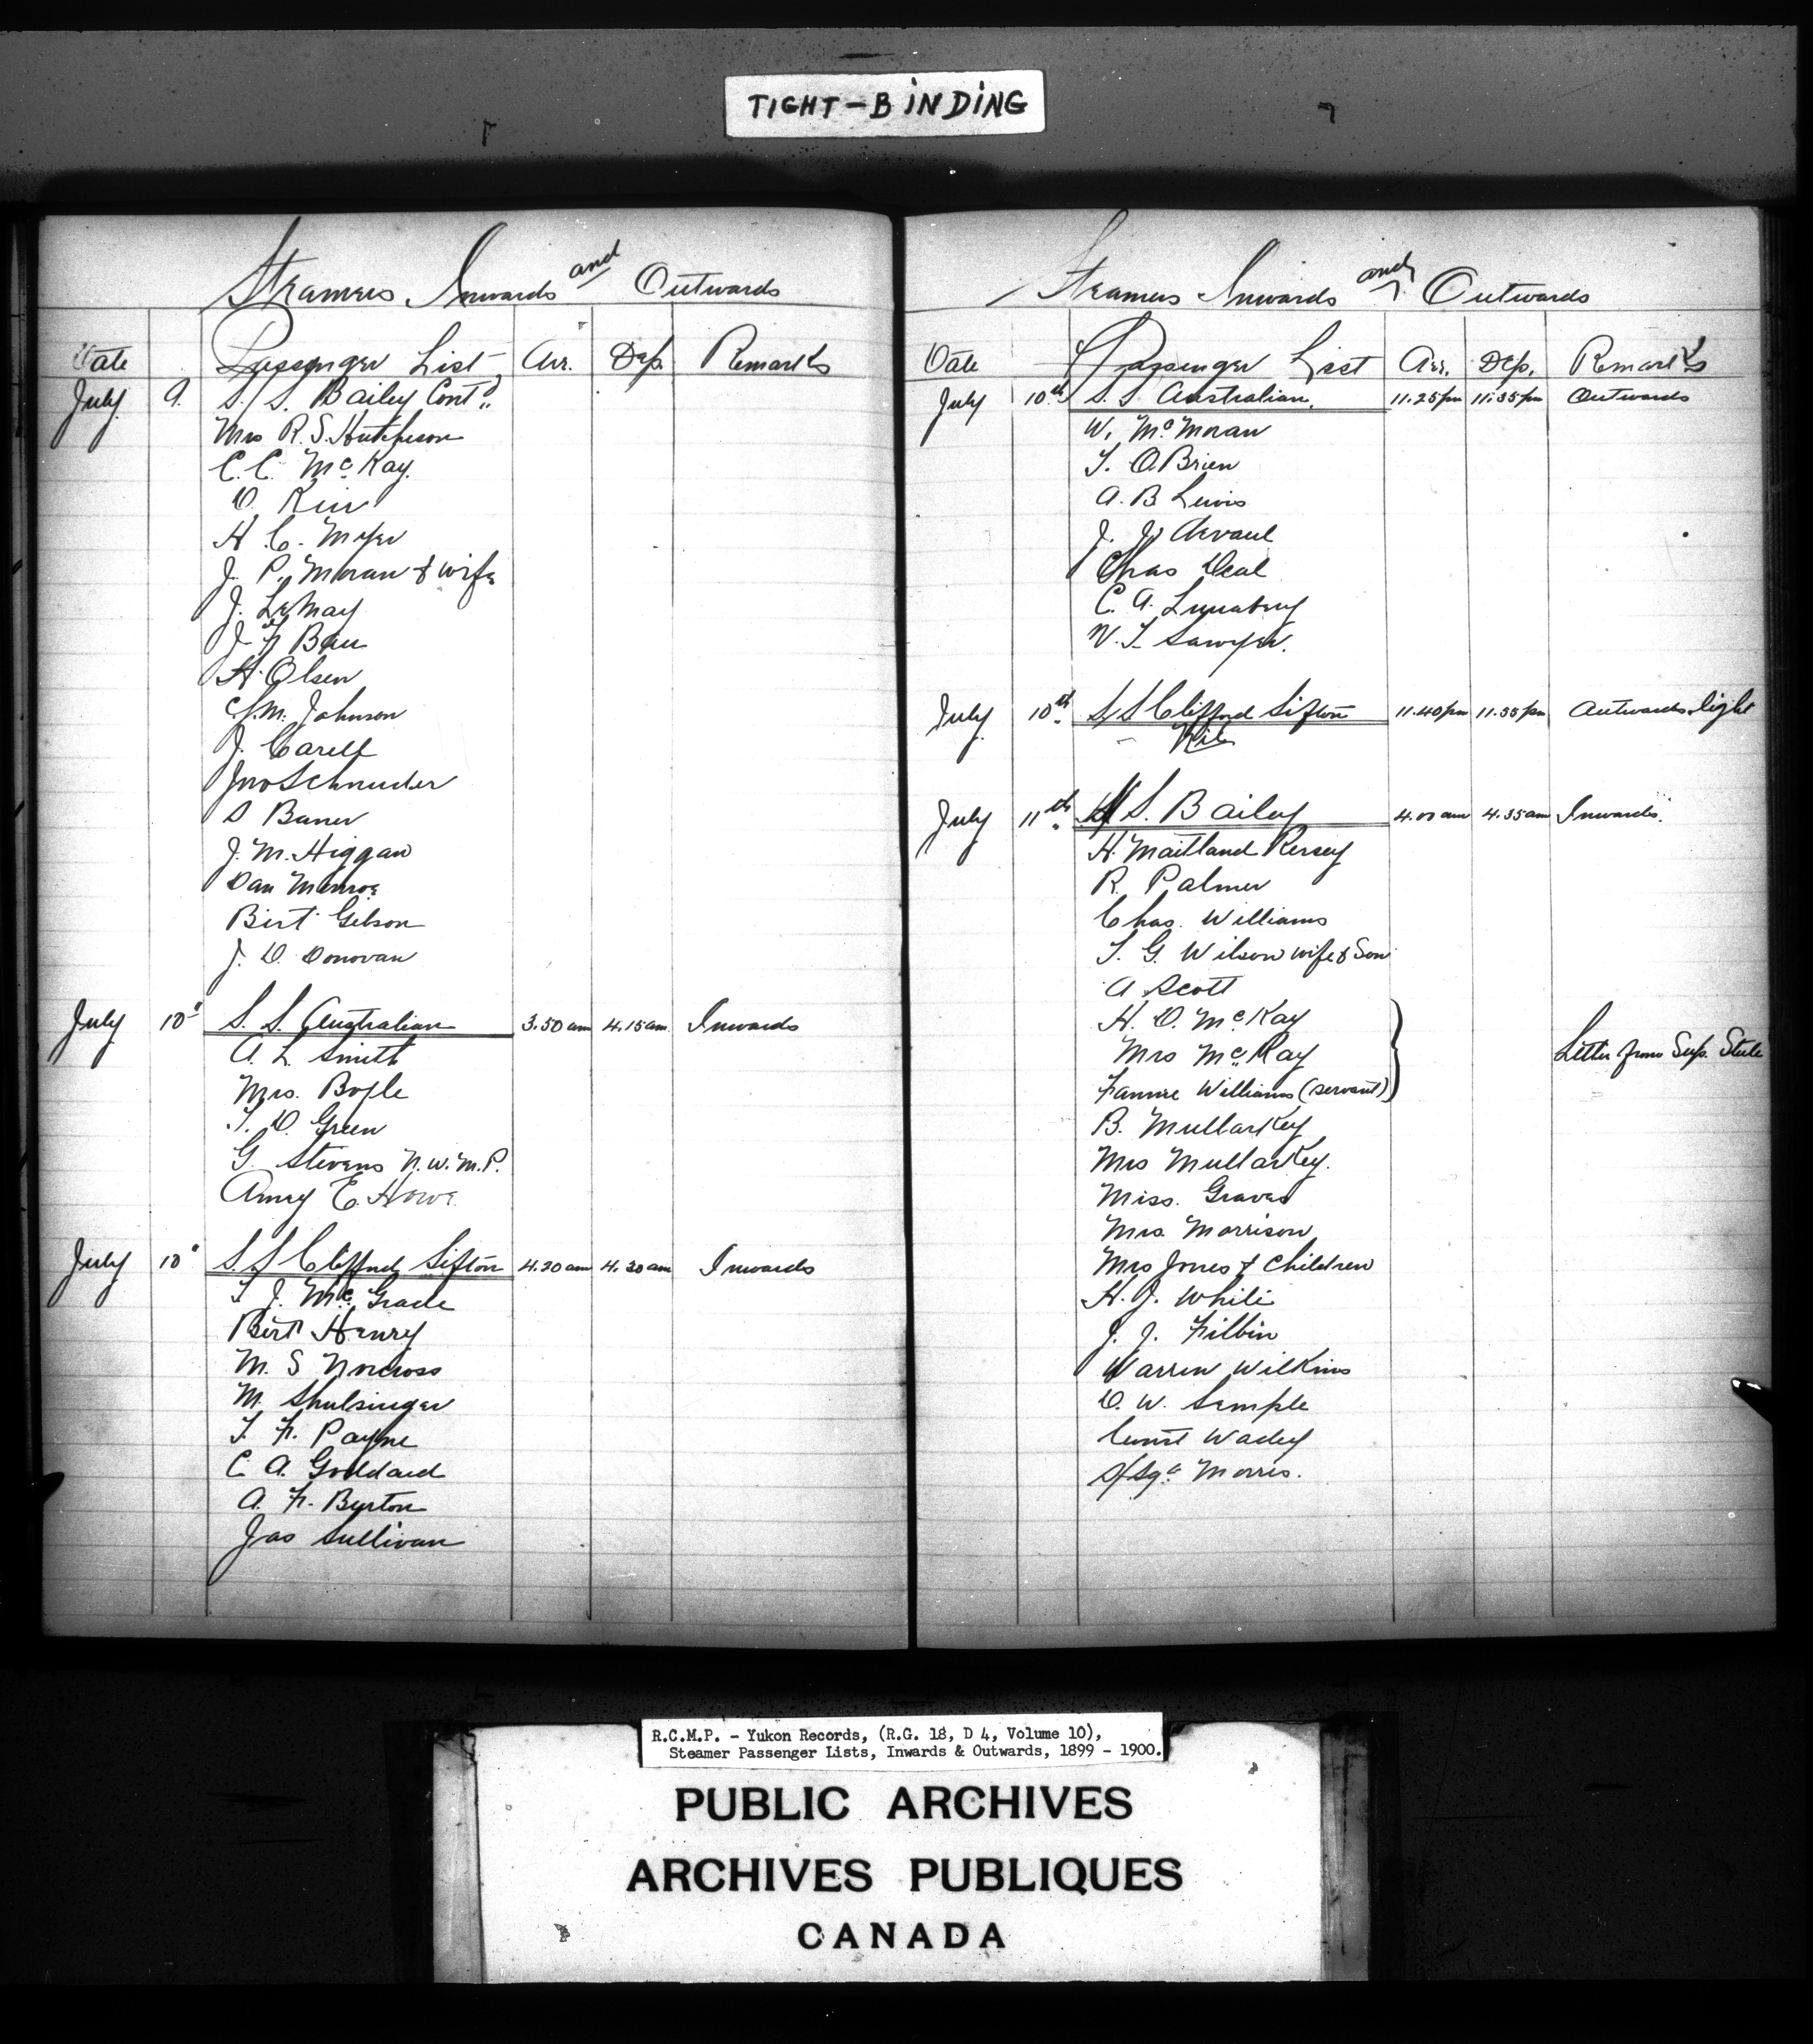 TIGHT-BINDING
Steamers Inwards and Outwards
Date Passenger List Arr. Dep. Remarks
July 9. S.S. Bailey Contd
Mrs R. S. Hutcheson
C. C. McKay.
D. Keir
H. C. Myer
J. P. Moran & wife
J. LeMay
J. F. Bau
H. Olsen
C. M. Johnson
J. Carell
Jno Schnuder
S Baner
J. M. Higgan
Dan Munroe
Birt Gibson
J. D. Donovan
July 10" S. S. Australian 3.50 am 4.15 am Inwards
A. L. Smith
Mrs. Boyle
T. D. Green
G. Stevens N.W.M.P.
Amey E. Howe
July 10" S.S Clifford Sifton 4.20 am 4.30 am Inwards
T. J. McGrade
Birt Henry
M. S Norcross
M. Shulsinger
T. F. Payne
C A. Goddard
A. F. Burton
Jas Sullivan
Steamers Inwards and Outwards
Date Passenger List Arr. Dep. Remarks
July 10th S.S Australian. 11.25 pm 11.35 pm Outwards
W. McMoran
T. O.Brien
A. B Lewis
J. J.
Chas Deal
C. A.
N. T. Sawyer.
July 10th S.S Clifford Sifton 11.40 pm 11.55 pm Outwards light
Nil
July 11th S.S. Bailey 4.00 am 4.35 am Inwards.
H. Maitland Kersey
R. Palmer
Chas. Williams
T. G. Wilson wife & Son
A Scott
H. D. McKay
Mrs McKay Letter from Sup. Steele
Fannie Williams (servant)
B. Mullarkey
Mrs Mullarkey.
Miss. Graves
Mrs. Morrison
Mrs Jones & Children
H. J. White
J. J. Filbin
Warren Wilkins
D. W. Semple
Const Wadey
S/Sgt Morris.
R.C.M.P. - Yukon Records, (R.G. 18, D 4, Volume 10),
Steamer Passenger Lists, Inwards & Outwards, 1899 - 1900.
PUBLIC ARCHIVES
ARCHIVES PUBLIQUES
CANADA